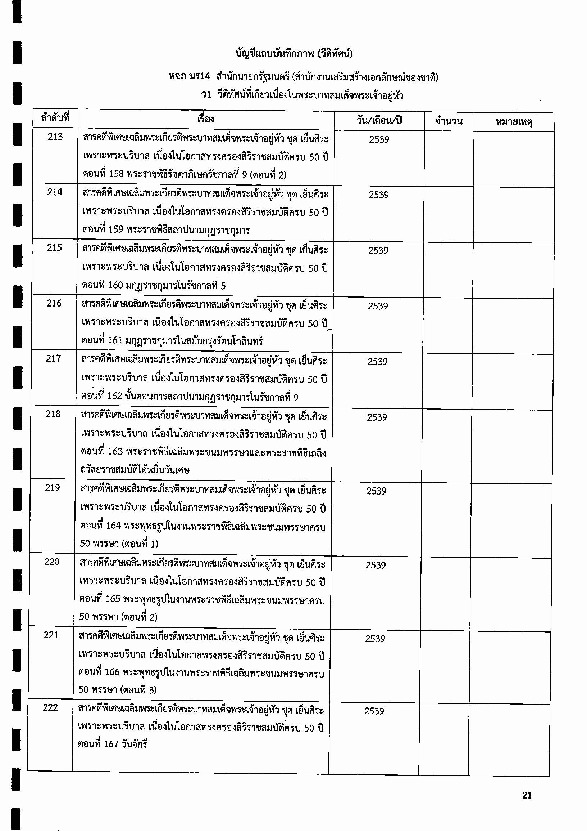 บัญชีแถบบันทึกภาพ (วีดิทัศน์)
หจภ นร14 สำนักนายกรัฐมนตรี (สำนักงานเสริมสร้างเอกลักษณ์ของชาติ)
ว1 วีดิทัศน์ที่เกี่ยวเนื่องในพระบาทสมเด็จพระเจ้าอยู่หัว
ลำดับที่ เรื่อง วัน/เดือน/ปี จำนวน หมายเหตุ
213 สารคดีพิเศษเฉลิมพระเกียรติพระบาทสมเด็จพระเจ้าอยู่หัว ชุด เย็นศิระ 2539
เพราะพระบริบาล เนื่องในโอกาสทรงครองสิริราชสมบัติครบ 50 ปี
ตอนที่ 158 พระราชพิธีรัชดาภิเษกรัชกาลที่ 9 (ตอนที่ 2)
214 สารคดีพิเศษเฉลิมพระเกียรติพระบาทสมเด็จพระเจ้าอยู่หัว ชุด เย็นศิระ 2539
เพราะพระบริบาล เนื่องในโอกาสทรงครองสิริราชสมบัติครบ 50 ปี
ตอนที่ 159 พระราชพิธีสถาปนามกุฎราชกุมาร
215 สารคดีพิเศษเฉลิมพระเกียรติพระบาทสมเด็จพระเจ้าอยู่หัว ชุด เย็นศิระ 2539
เพราะพระบริบาล เนื่องในโอกาสทรงครองสิริราชสมบัติครบ 50 ปี
ตอนที่ 160 มกุฎราชกุมารในรัชกาลที่ 5
216 สารคดีพิเศษเฉลิมพระเกียรติพระบาทสมเด็จพระเจ้าอยู่หัว ชุด เย็นศิระ 2539
เพราะพระบริบาล เนื่องในโอกาสทรงครองสิริราชสมบัติครบ 50 ปี
ตอนที่ 161 มกุฎราชกุมารในสมัยกรุงรัตนโกสินทร์
217 สารคดีพิเศษเฉลิมพระเกียรติพระบาทสมเด็จพระเจ้าอยู่หัว ชุด เย็นศิระ 2539
เพราะพระบริบาล เนื่องในโอกาสทรงครองสิริราชสมบัติครบ 50 ปี
ตอนที่ 162 ขั้นตอนการสถาปนามกุฎราชกุมารในรัชกาลที่ 9
218 สารคดีพิเศษเฉลิมพระเกียรติพระบาทสมเด็จพระเจ้าอยู่หัว ชุด เย็นศิระ 2539
เพราะพระบริบาล เนื่องในโอกาสทรงครองสิริราชสมบัติครบ 50 ปี
ตอนที่ 163 พระราชพิธีเฉลิมพระชนมพรรษาและพระราชพิธีเถลิง
ถวัลยราชสมบัติ
219 สารคดีพิเศษเฉลิมพระเกียรติพระบาทสมเด็จพระเจ้าอยู่หัว ชุด เย็นศิระ 2539
เพราะพระบริบาล เนื่องในโอกาสทรงครองสิริราชสมบัติครบ 50 ปี
ตอนที่ 164 พระพุทธรูปในงานพระราชพิธีเฉลิมพระชนมพรรษาครบ
50 พรรษา (ตอนที่ 1)
220 สารคดีพิเศษเฉลิมพระเกียรติพระบาทสมเด็จพระเจ้าอยู่หัว ชุด เย็นศิระ 2539
เพราะพระบริบาล เนื่องในโอกาสทรงครองสิริราชสมบัติครบ 50 ปี
ตอนที่ 165 พระพุทธรูปในงานพระราชพิธีเฉลิมพระชนมพรรษาครบ
50 พรรษา (ตอนที่ 2)
221 สารคดีพิเศษเฉลิมพระเกียรติพระบาทสมเด็จพระเจ้าอยู่หัว ชุด เย็นศิระ 2539
เพราะพระบริบาล เนื่องในโอกาสทรงครองสิริราชสมบัติครบ 50 ปี
ตอนที่ 166 พระพุทธรูปในงานพระราชพิธีเฉลิมพระชนมพรรษาครบ
50 พรรษา (ตอนที่ 3)
222 สารคดีพิเศษเฉลิมพระเกียรติพระบาทสมเด็จพระเจ้าอยู่หัว ชุด เย็นศิระ 2539
เพราะพระบริบาล เนื่องในโอกาสทรงครองสิริราชสมบัติครบ 50 ปี
ตอนที่ 167 วันจักรี
21